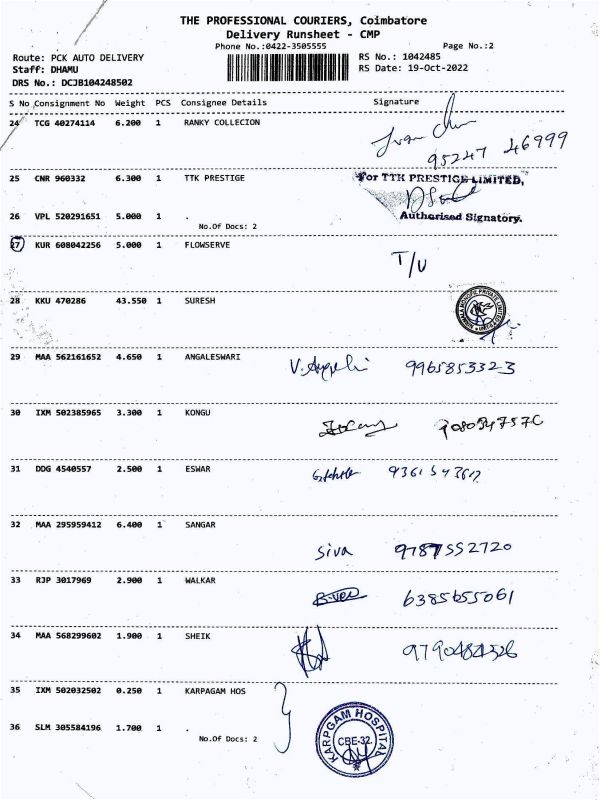 THE PROFESSIONAL COURIERS, Coimbatore
Delivery Runsheet - CMP
Phone No.:0422-3505555
Page No.:2
Route: PCK AUTO DELIVERY
RS No.: 1042485
Staff: DHAMU
RS Date: 19-Oct-2022
DRS No.: DCJB104248502
S No Consignment No Weight PCS Consignee Details Signature
24 TCG 40274114 6.200 1 RANKY COLLECION
95247 46999
25 CNR 960332 6.300 1 TTK PRESTIGE
For TTK PRESTIGE LIMITED,
Authorised Signatory.
26 VPL 520291651 5.000 1 .
No.Of Docs: 2
27 KUR 608042256 5.000 1 FLOWSERVE
T/U
28 KKU 470286 43.550 1 SURESH
29 MAA 562161652 4.650 1 ANGALESWARI
9965853323
30 IXM 502385965 3.300 1 KONGU
31 DDG 4540557 2.500 1 ESWAR
32 MAA 295959412 6.400 1 SANGAR
Siva 9787552720
33 RJP 3017969 2.900 1 WALKAR
6385655061
34 MAA 568299602 1.900 1 SHEIK
35 IXM 502032502 0.250 1 KARPAGAM HOS
KARPGAM HOSPITAL
CBE-32.
36 SLM 305584196 1.700 1 .
No.Of Docs: 2